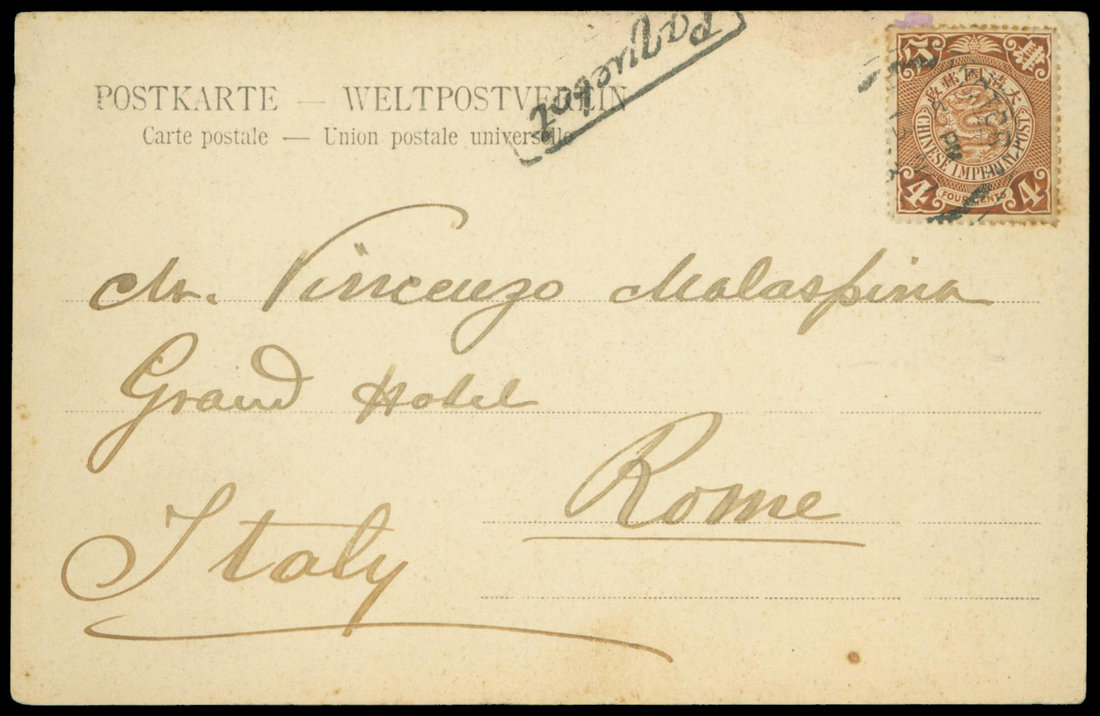 Paquebot
POSTKARTE — WELTPOSTVEREIN
Carte postale — Union postale universelle
大清國郵政
CHINESE IMPERIAL POST
4 FOUR CENTS 4
Mr. Vincenzo Malaspina
Grand Hotel
Rome
Italy